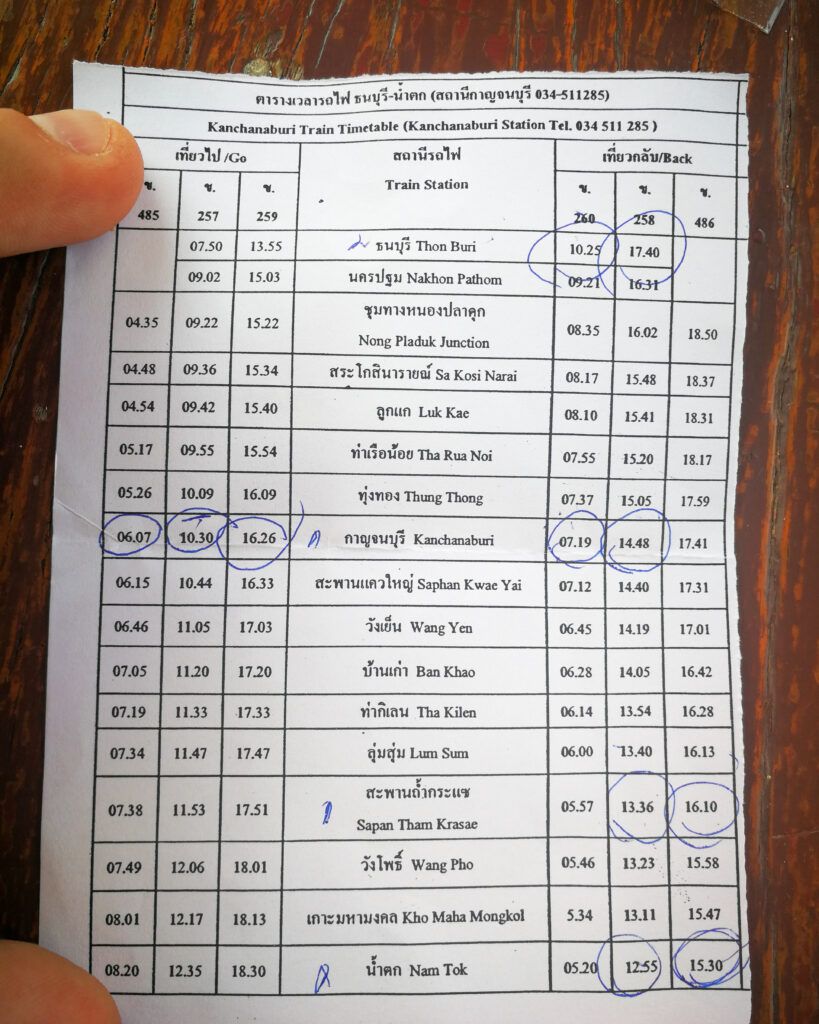 ตารางเวลารถไฟ ธนบุรี-น้ำตก (สถานีกาญจนบุรี 034-511285)
Kanchanaburi Train Timetable (Kanchanaburi Station Tel. 034 511 285 )
เที่ยวไป /Go สถานีรถไฟ เที่ยวกลับ/Back
Train Station
ข. ข. ข. ข. ข. ข.
485 257 259 260 258 486
07.50 13.55 ธนบุรี Thon Buri 10.25 17.40
09.02 15.03 นครปฐม Nakhon Pathom 09.21 16.31
ชุมทางหนองปลาดุก
04.35 09.22 15.22 Nong Pladuk Junction 08.35 16.02 18.50
04.48 09.36 15.34 สระโกสินารายณ์ Sa Kosi Narai 08.17 15.48 18.37
04.54 09.42 15.40 ลูกแก Luk Kae 08.10 15.41 18.31
05.17 09.55 15.54 ท่าเรือน้อย Tha Rua Noi 07.55 15.20 18.17
05.26 10.09 16.09 ทุ่งทอง Thung Thong 07.37 15.05 17.59
06.07 10.30 16.26 กาญจนบุรี Kanchanaburi 07.19 14.48 17.41
06.15 10.44 16.33 สะพานแควใหญ่ Saphan Kwae Yai 07.12 14.40 17.31
06.46 11.05 17.03 วังเย็น Wang Yen 06.45 14.19 17.01
07.05 11.20 17.20 บ้านเก่า Ban Khao 06.28 14.05 16.42
07.19 11.33 17.33 ท่ากิเลน Tha Kilen 06.14 13.54 16.28
07.34 11.47 17.47 ลุ่มสุ่ม Lum Sum 06.00 13.40 16.13
สะพานถ้ำกระแซ
07.38 11.53 17.51 Sapan Tham Krasae 05.57 13.36 16.10
07.49 12.06 18.01 วังโพธิ์ Wang Pho 05.46 13.23 15.58
08.01 12.17 18.13 เกาะมหามงคล Kho Maha Mongkol 5.34 13.11 15.47
08.20 12.35 18.30 น้ำตก Nam Tok 05.20 12.55 15.30